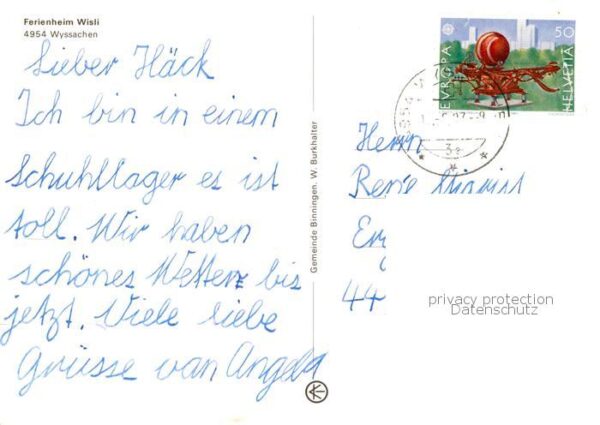 Ferienheim Wisli
4954 Wyssachen
Lieber Häck
Ich bin in einem
Schuhllager es ist
toll. Wir haben
schönes Wetterz bis
jetzt. Viele liebe
Grüsse van Angela
Gemeinde Binningen. W. Burkhalter
EVROPA
50
HELVETIA
Herrn
René
44
privacy protection
Datenschutz